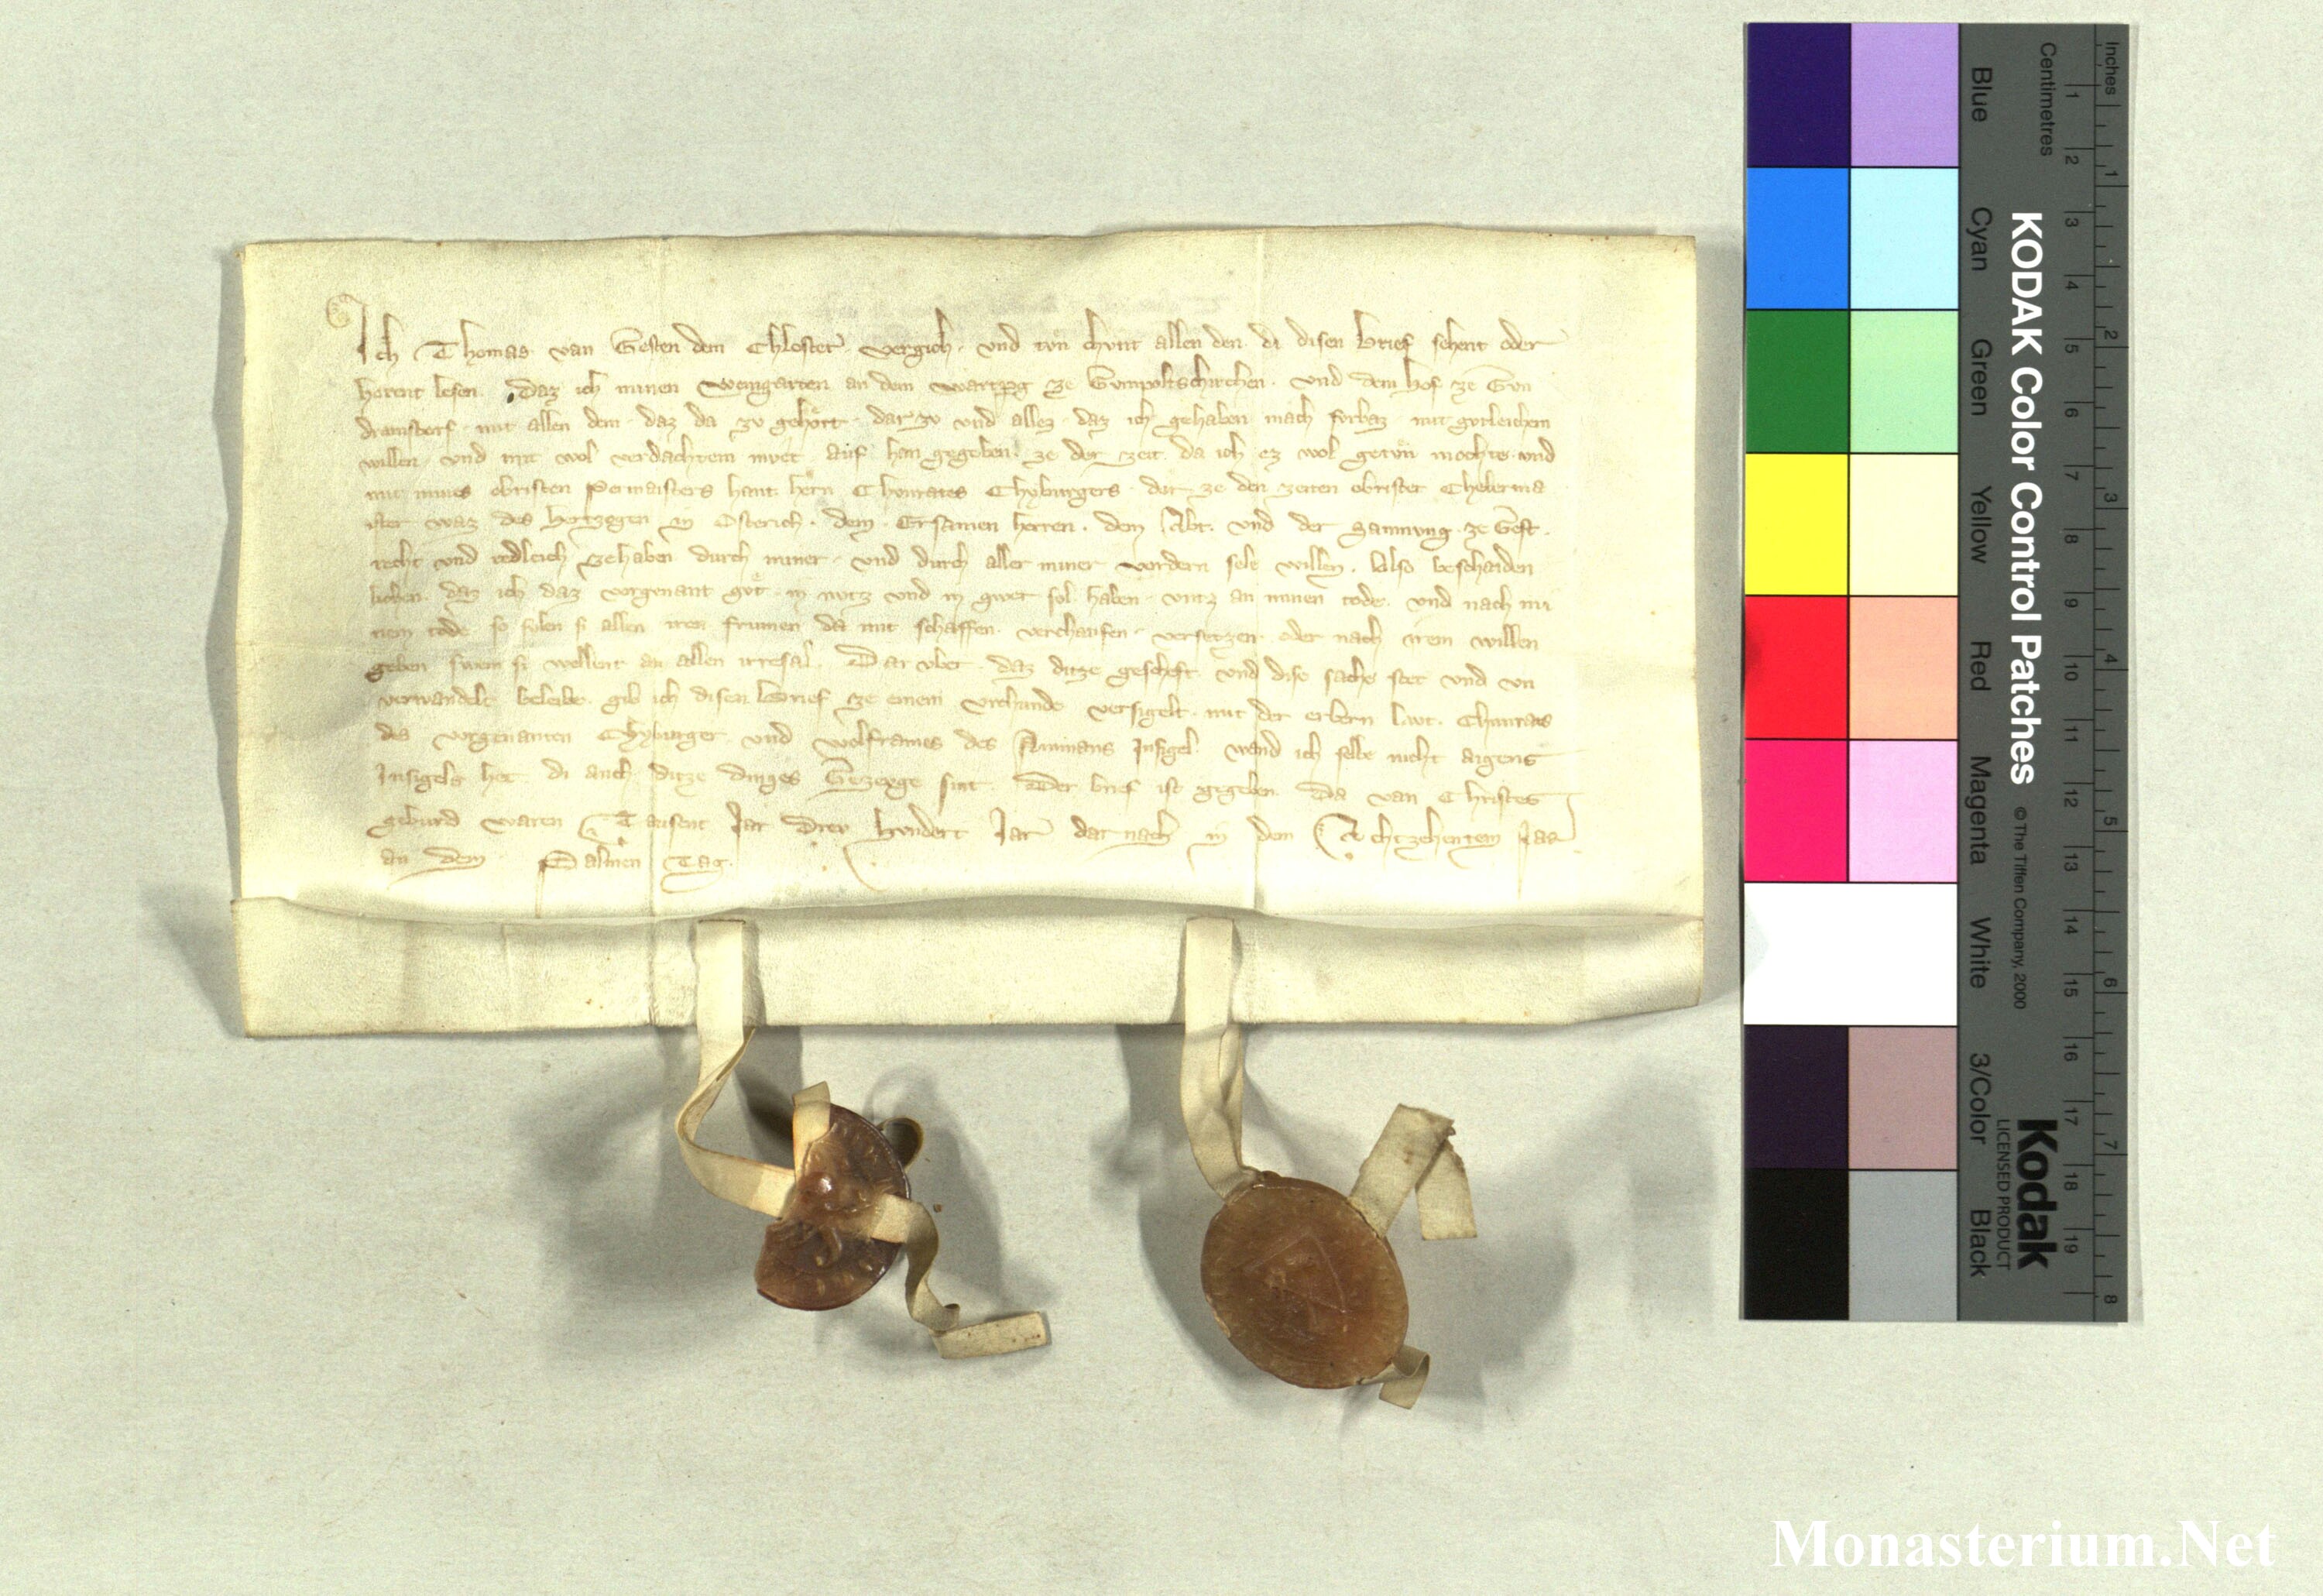 Ich Thomas van Gesten dem Chloster vergich und tvn chvnt allen den di disen brief sehent oder
horent lesen. Daz ich minen weingarten an dem wartperg ze Gvmpoltschirchen. und dem hof ze Gvn
dramstorf mit allen dem daz da zv gehort dar zv und allez daz ich gehaben mach fvrbaz mit gvtleichem
willen und mit wol verdachtem mvet auf han gegeben. ze der zeit da ich ez wol getvn mochte und
mit mines obristen Permaisters hant hern Chvnrates Chyburgers der ze den zeiten obrister Chelerma
ister waz des hertzogen in Osterich. dem Ersamen herren. dem Abt. und der samnvng ze Gest.
recht und redleich ze haben durch miner und durch aller miner vordern sele willen. Also beschaiden
lichen. daz ich daz vorgenant gvt in nvtz und in gwer sol haben vntz an minen tode. und nach mi
nem tode so svlen si allen iren frumen da mit schaffen. verchaufen versetzen oder nach irem willen
geben swem si wellent an allen irresal. Dar vber daz ditze gescheft und dise sache stet und vn
verwandelt beleibe. gib ich disen brief ze einem vrchunde versigelt mit der erbern livt. Chunrates
des vorgenanten Chyburger und wolframes des Ammans Insigel wand ich selbe nicht aigens
Insigels het di auch ditze dinges Gezevge sint. Der brief ist gegeben Da van Christes
geburd waren Tausent Jar Drev hvndert Jar dar nach in dem Achtzehentem Jar
an dem Palmen Tag.
KODAK Color Control Patches
© The Tiffen Company, 2000
Kodak
LICENSED PRODUCT
Blue Cyan Green Yellow Red Magenta White 3/Color Black
Centimetres
1 2 3 4 5 6 7 8 9 10 11 12 13 14 15 16 17 18 19
Inches
1 2 3 4 5 6 7 8
Monasterium.Net